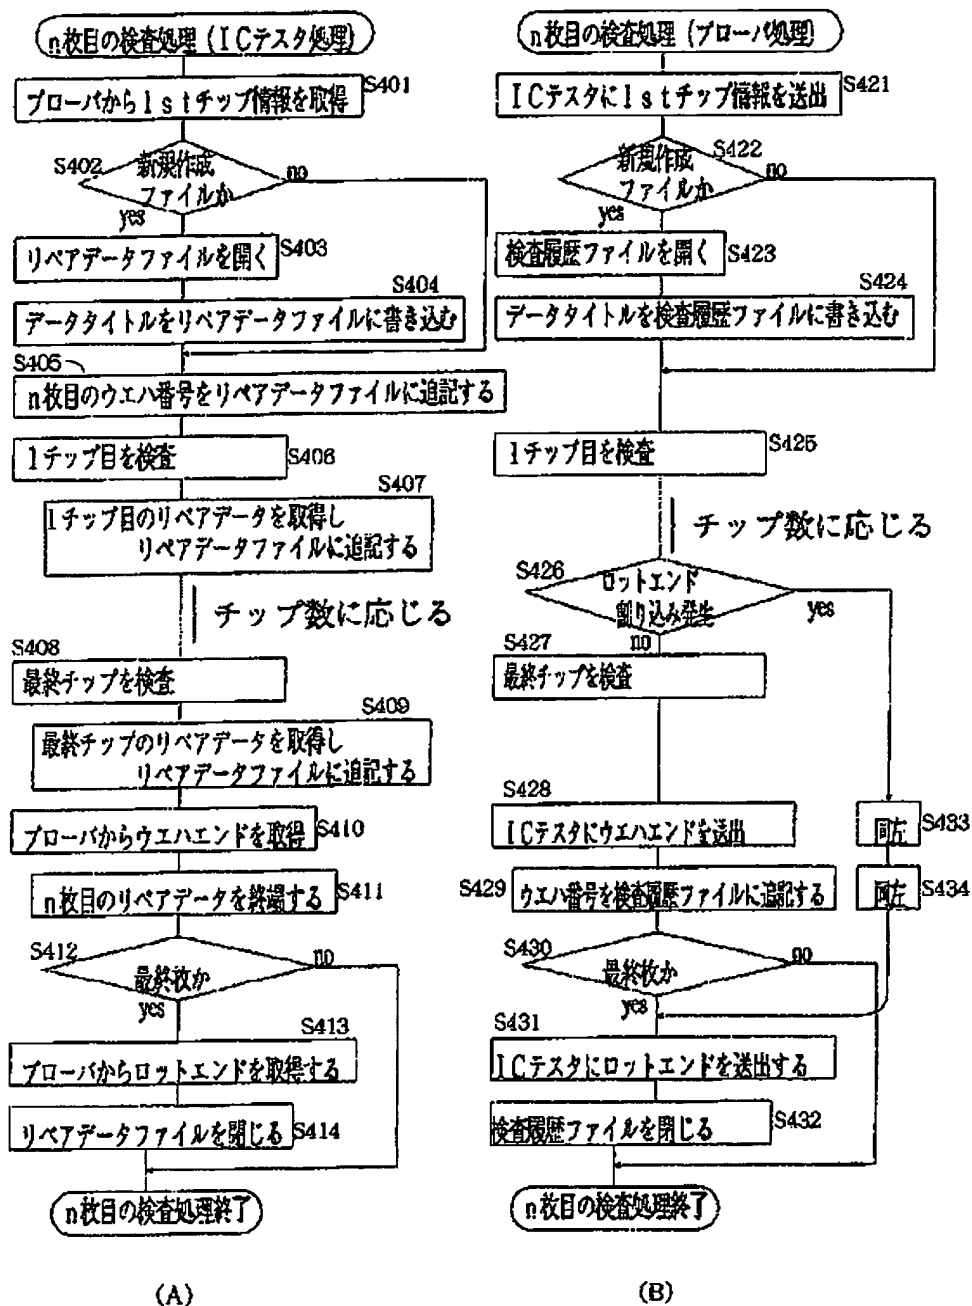 n枚目の検査処理(ICテスタ処理)
プローバから1stチップ情報を取得
S401
S402
新規作成
ファイルか
no
yes
リペアデータファイルを開く
S403
S404
データタイトルをリペアデータファイルに書き込む
S405
n枚目のウエハ番号をリペアデータファイルに追記する
1チップ目を検査
S406
S407
1チップ目のリペアデータを取得し
リペアデータファイルに追記する
チップ数に応じる
S408
最終チップを検査
S409
最終チップのリペアデータを取得し
リペアデータファイルに追記する
プローバからウエハエンドを取得
S410
n枚目のリペアデータを終端する
S411
S412
最終枚か
no
yes
S413
プローバからロットエンドを取得する
リペアデータファイルを閉じる
S414
n枚目の検査処理終了
(A)
n枚目の検査処理(プローバ処理)
ICテスタに1stチップ情報を送出
S421
S422
新規作成
ファイルか
no
yes
検査履歴ファイルを開く
S423
S424
データタイトルを検査履歴ファイルに書き込む
1チップ目を検査
S425
チップ数に応じる
S426
ロットエンド
割り込み発生
yes
S427
no
最終チップを検査
S428
ICテスタにウエハエンドを送出
同左
S433
S429
ウエハ番号を検査履歴ファイルに追記する
同左
S434
S430
最終枚か
no
yes
S431
ICテスタにロットエンドを送出する
検査履歴ファイルを閉じる
S432
n枚目の検査処理終了
(B)